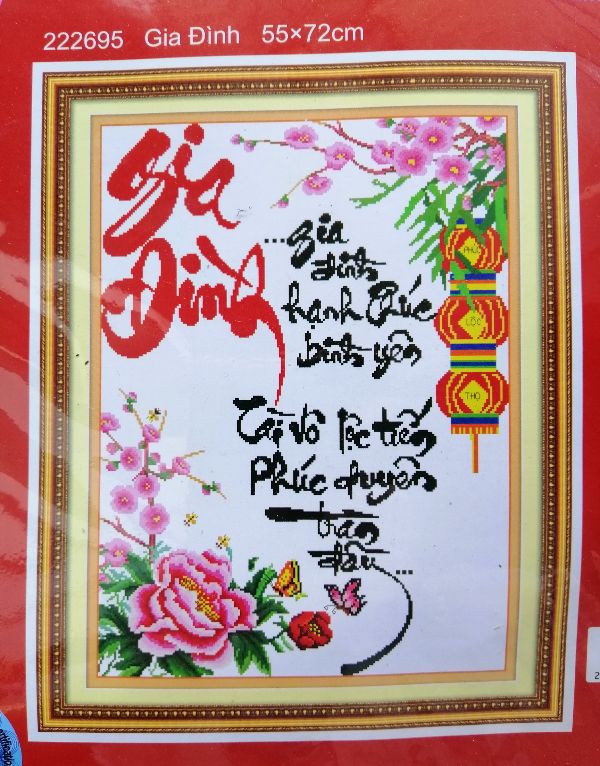 222695 Gia Đình 55×72cm
Gia
Đình
...gia
đình
hạnh Phúc
bình yên
Tài vô lộc tiến
Phúc duyên
tràn
đầy...
PHÚC
LỘC
THỌ